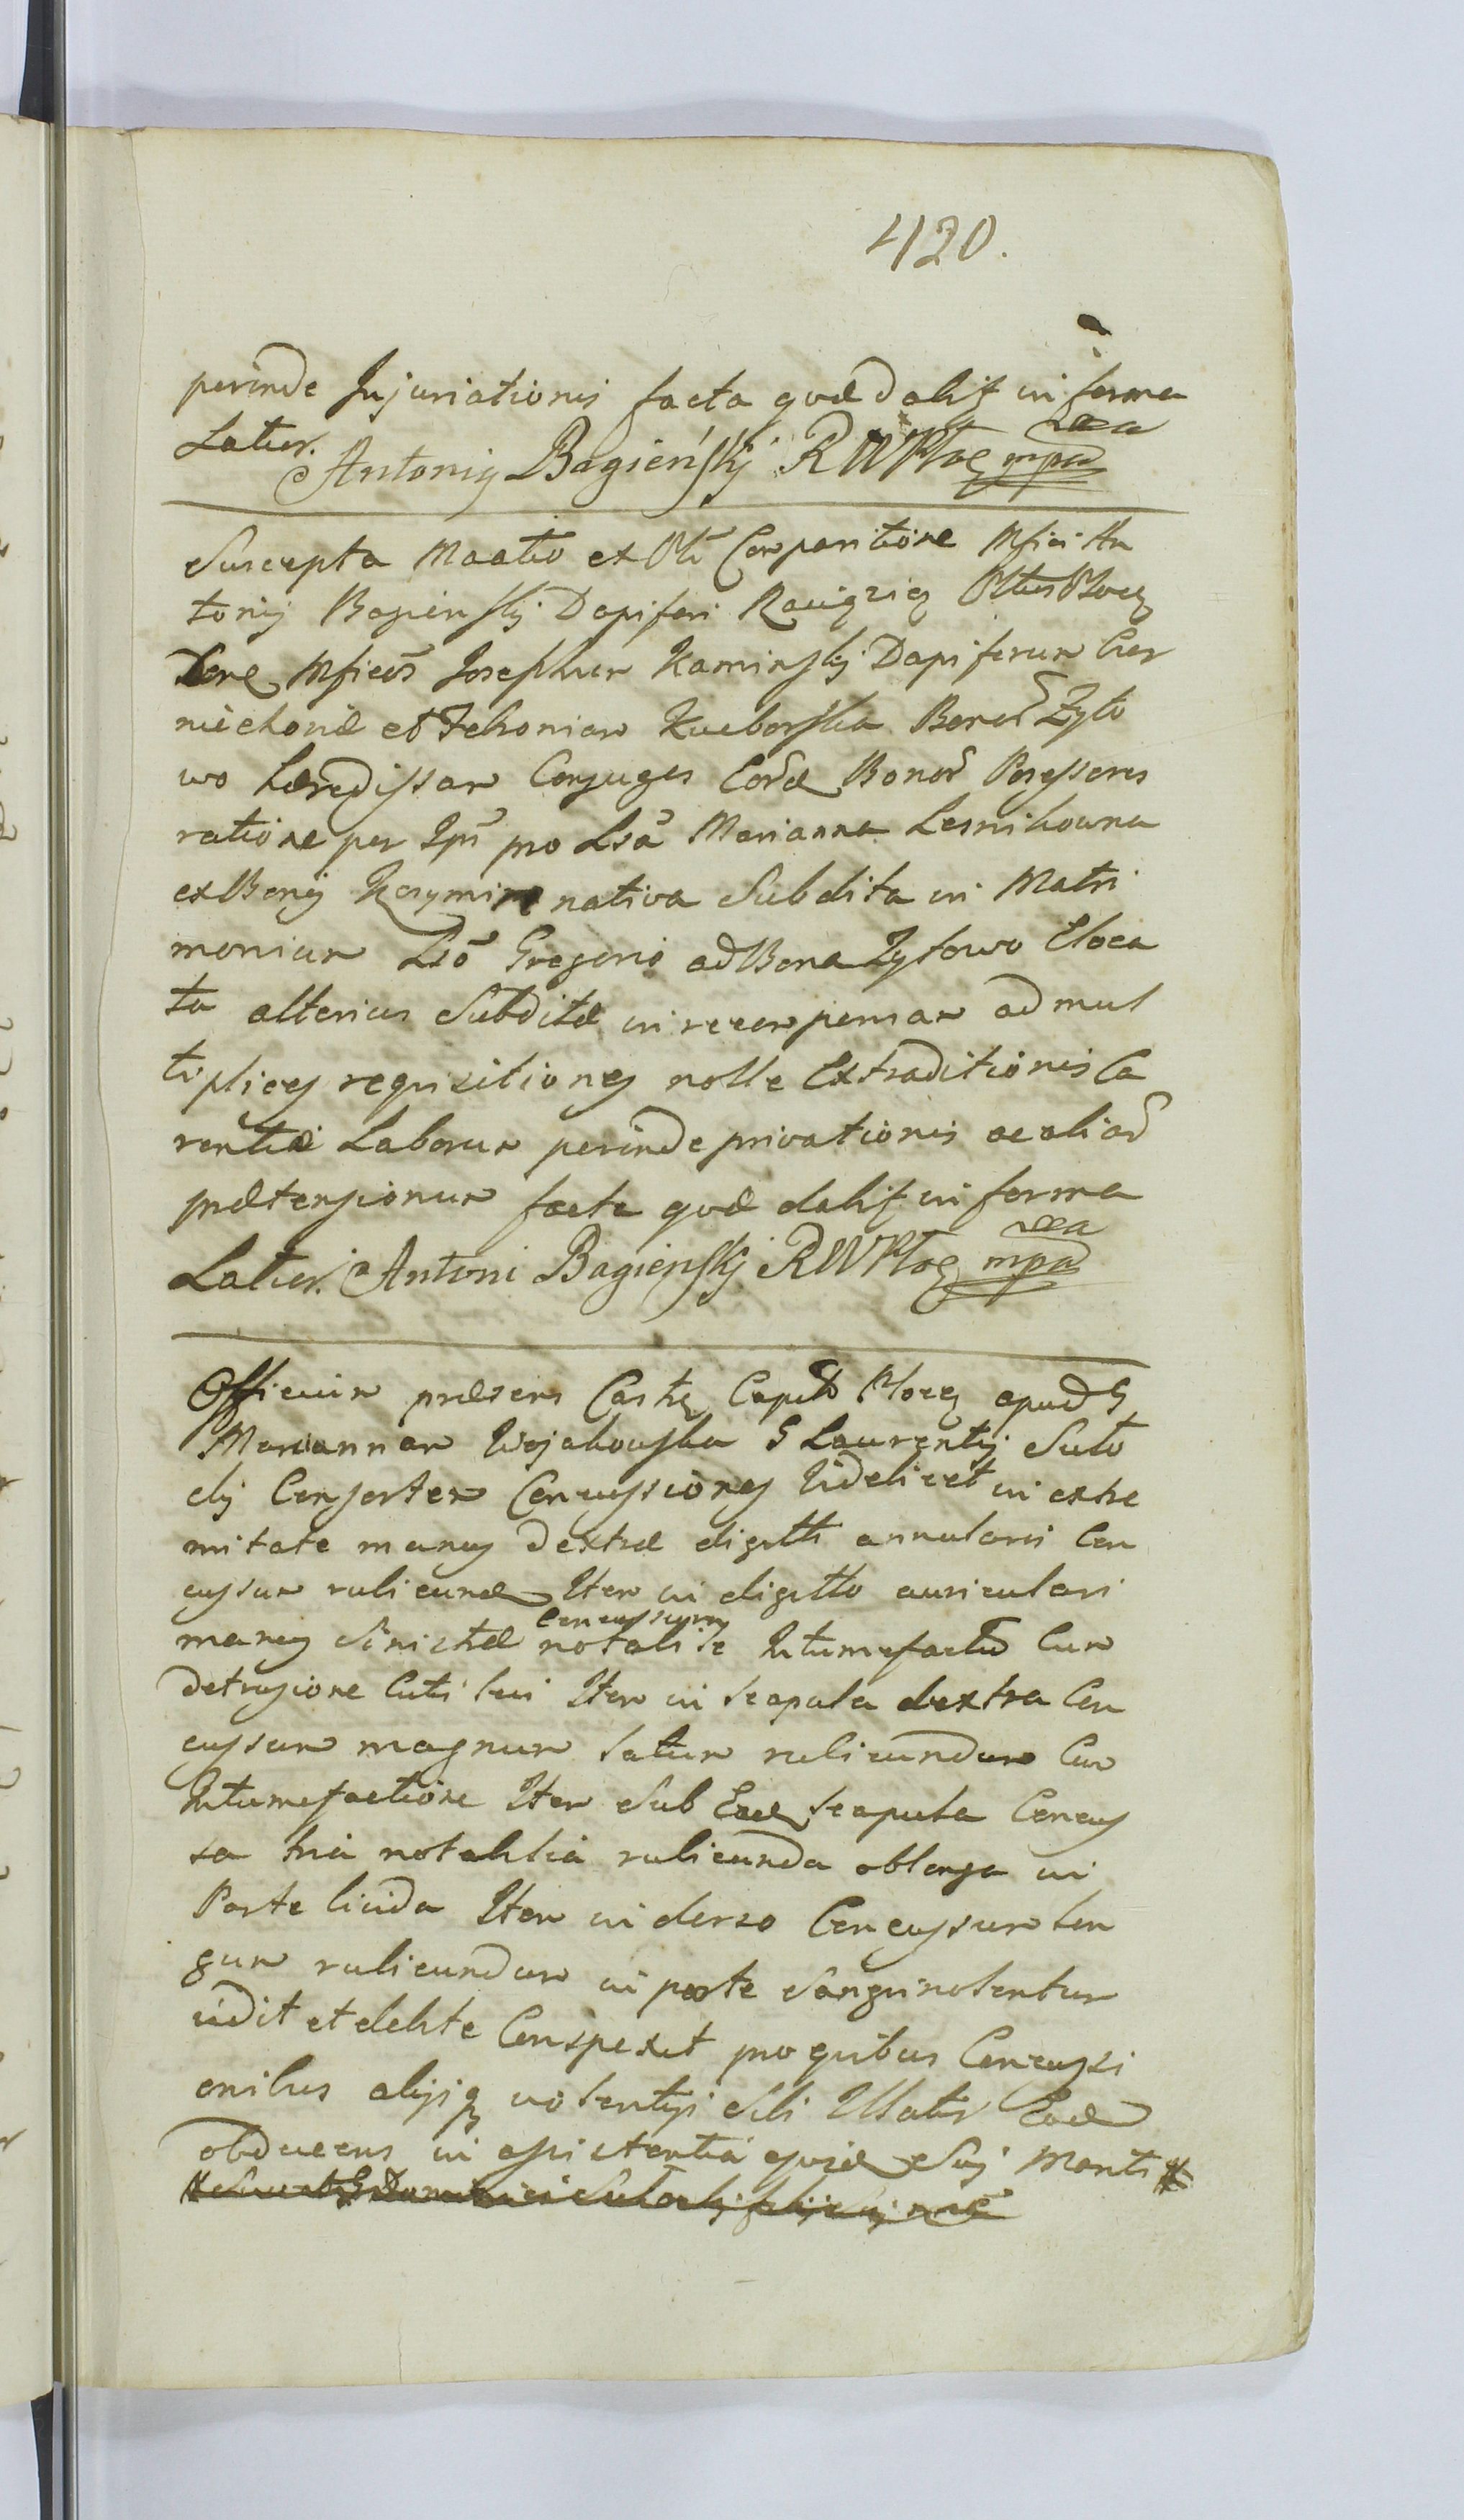 420.
perinde Injuriationis facta quæ dalis in forma
Latior. Antonig Bagieńskj RWPłoc mpa
Suscepta Maatio ex Comparitione Mfici An
tonij Bagienskj Dapiferi
Mficos Josephum Kaminskj Dapiferum Cier
niechoviæ et Bonor Zyto
wo hæredissam Conjuges Bonor Possessores
ratione per Ipm pro Lsa Marianna Lesnikowna
ex Bonis nativa Subdita in Matri
monium Lso Gregorio ad Bona Zytowo Eloca
ta alterius Subditæ in recompensam ad mul
tiplices requisitiones nolle Extraditionis Ca
rentiæ Laborum perinde privationis ac aliar
prætensionum facta quæ dalis in forma
Latior. Antoni Bagienskj RWPłoc mpa
Officium præsens Castr Capit Plocen apud G
Mariannam G Laurentij Suto
cij Consortem Concussiones Videlicet in extre
mitate manus dextræ digitti annularis Con
cussum rubicund Item in digitto auriculari
manus Sinistræ concussum notabile Intumefactu Cum
detrusione Cutis sui Item in scapula dextra Con
cussum magnum latum rubicundum Cum
Intumefactione Item Sub Ead scapula Concus
sa tria notabilia rubicunda oblonga in
Parte livida Item in dorso Concussum lon
gum rubicundum in parte Sanguinolentum
vidit et debite Conspexit pro quibus Concussi
onibus alijsq violentijs Sibi Illatis Ead
obducens in assistentia ejusd Sui Mariti #